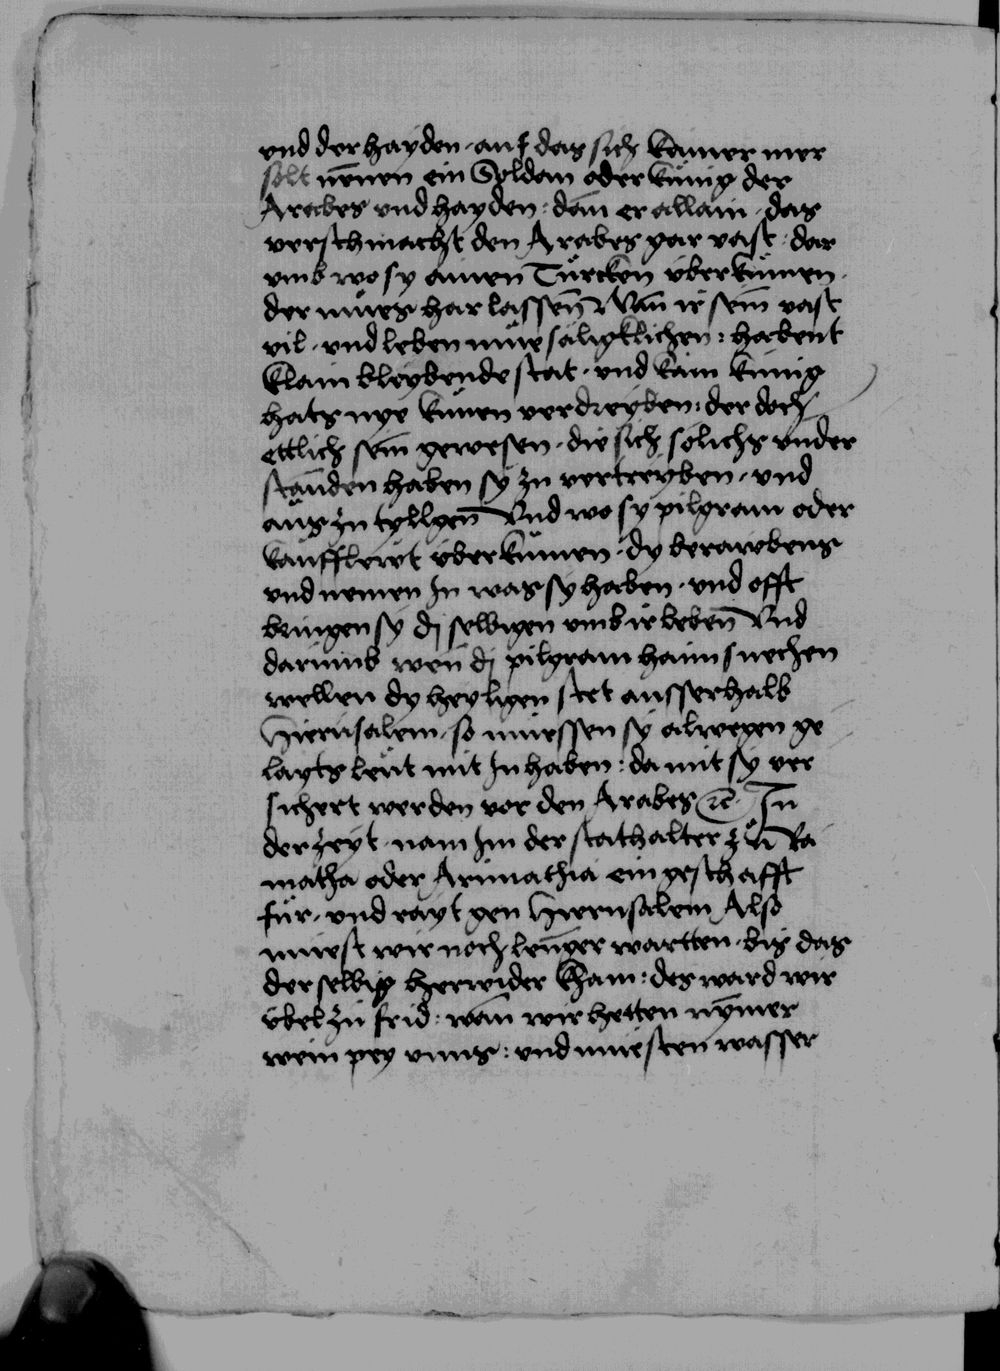 vnd der hayden · auf das sich kainer mer
solt nēnen ein Soldan oder künig der
Arabes vnd hayden : dān er allain · das
verschmacht den Arabes gar vast · dar
vmb wo sy ainen Türcken überkumen ·
der mües har lassen̄ Wan̄ ir sein̄ vast
vil · vnd leben müesäligklichen : habent
klain bleybende stat · vnd kain künig
hats nye künen verdreyben : der doch
ettlich sein̄ gewesen · die sich sölichs vnder
standen haben sy zu vertreyben · vnd
aus zu tyllgen̄ Vnd wo sy pilgram oder
kauffleut überkumen · dy berawbens
vnd nemen In was sy haben · vnd offt
bringen sy dj selbigen vmb ir leben̄ Vnd
darumb wen̄ dj pilgram haimsuechen
wellen dy heyligen stet ausserhalb
Hierusalem · so müessen sy alwegen ge
layts leüt mit In haben : damit sy ver
sichert werden vor den Arabes ꝛc̄ · In
der zeyt · nam Im der stathalter zu Ra
matha oder Arimathia ein geschafft
für · vnd rayt gen Hierusalem Also
muest wir noch lenger wartten · bis das
der selbig herwider kham : des ward wir
übel zu frid : wan̄ wir hetten nȳmer
wein pey vnns : vnd muesten wasser